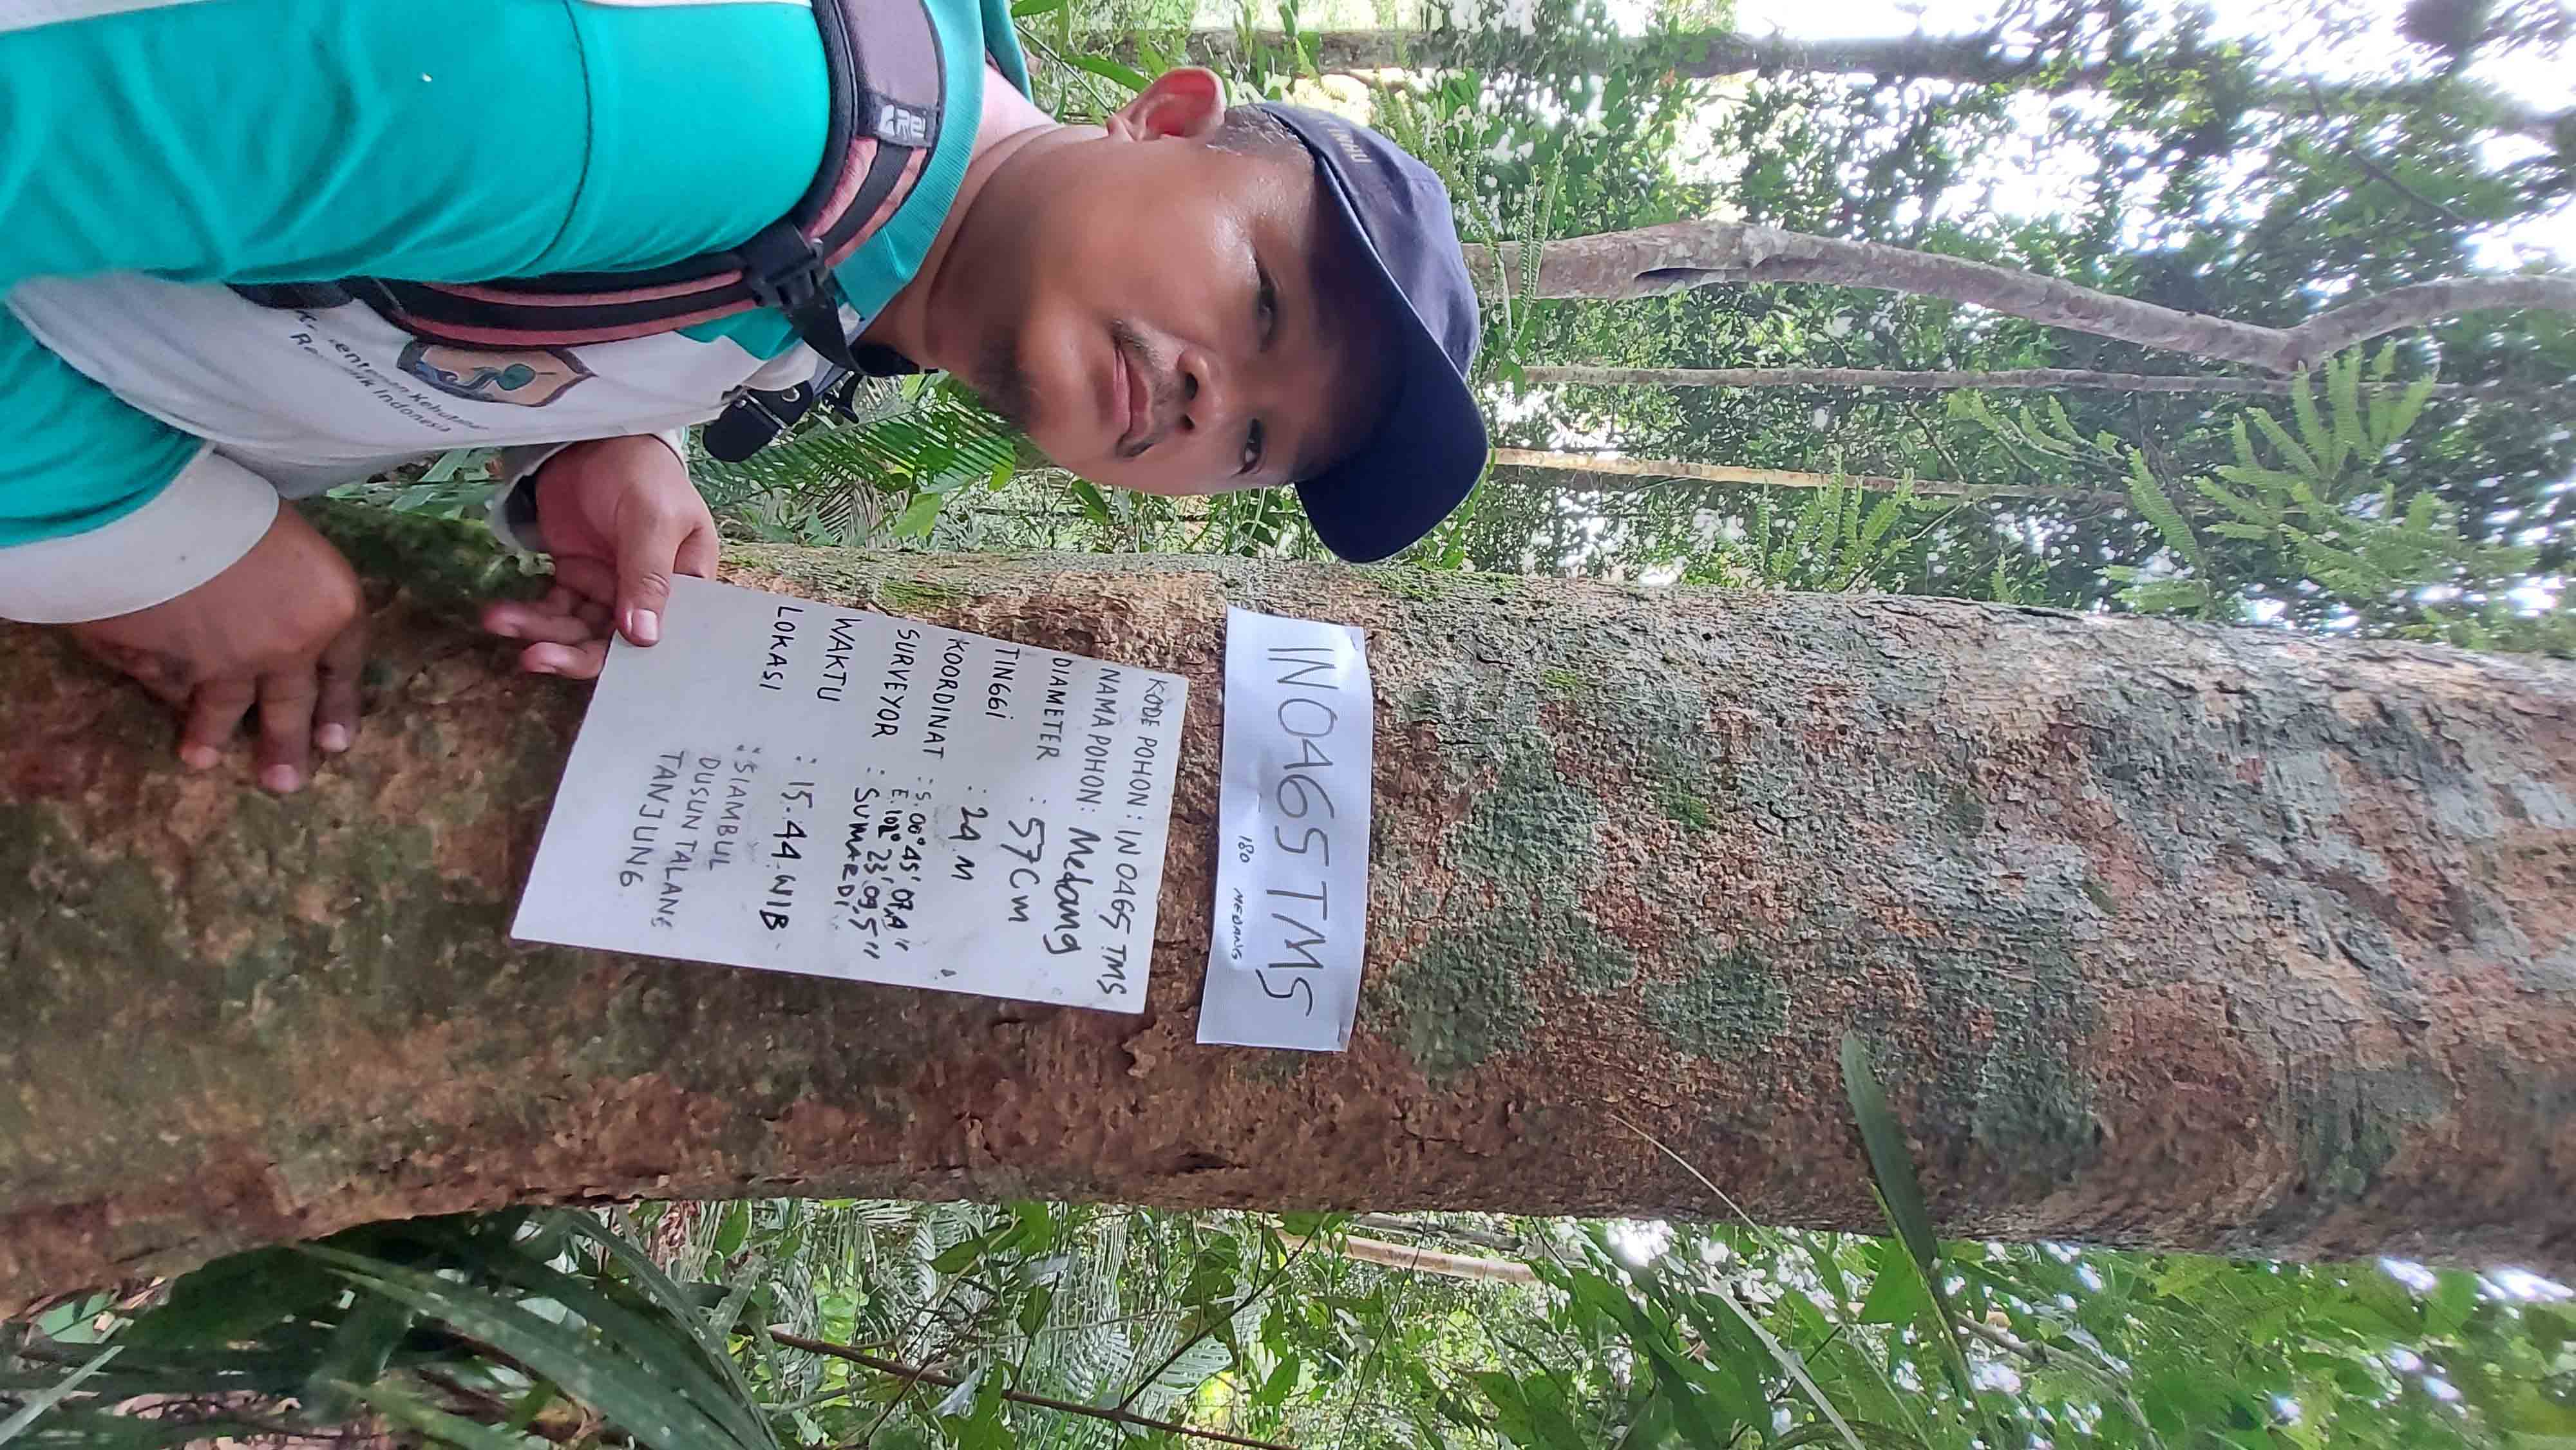 INHU
IN0465 TMS
180 MEDANG
KODE POHON : IN 0465 TMS
NAMA POHON : Medang
DIAMETER : 57 Cm
TINGGI : 24 M
KOORDINAT : S. 00° 45' 07,4"
E. 102° 23' 09,5"
SURVEYOR : SUMARDI
WAKTU : 15.44 WIB
LOKASI : SIAMBUL
DUSUN TALANG
TANJUNG